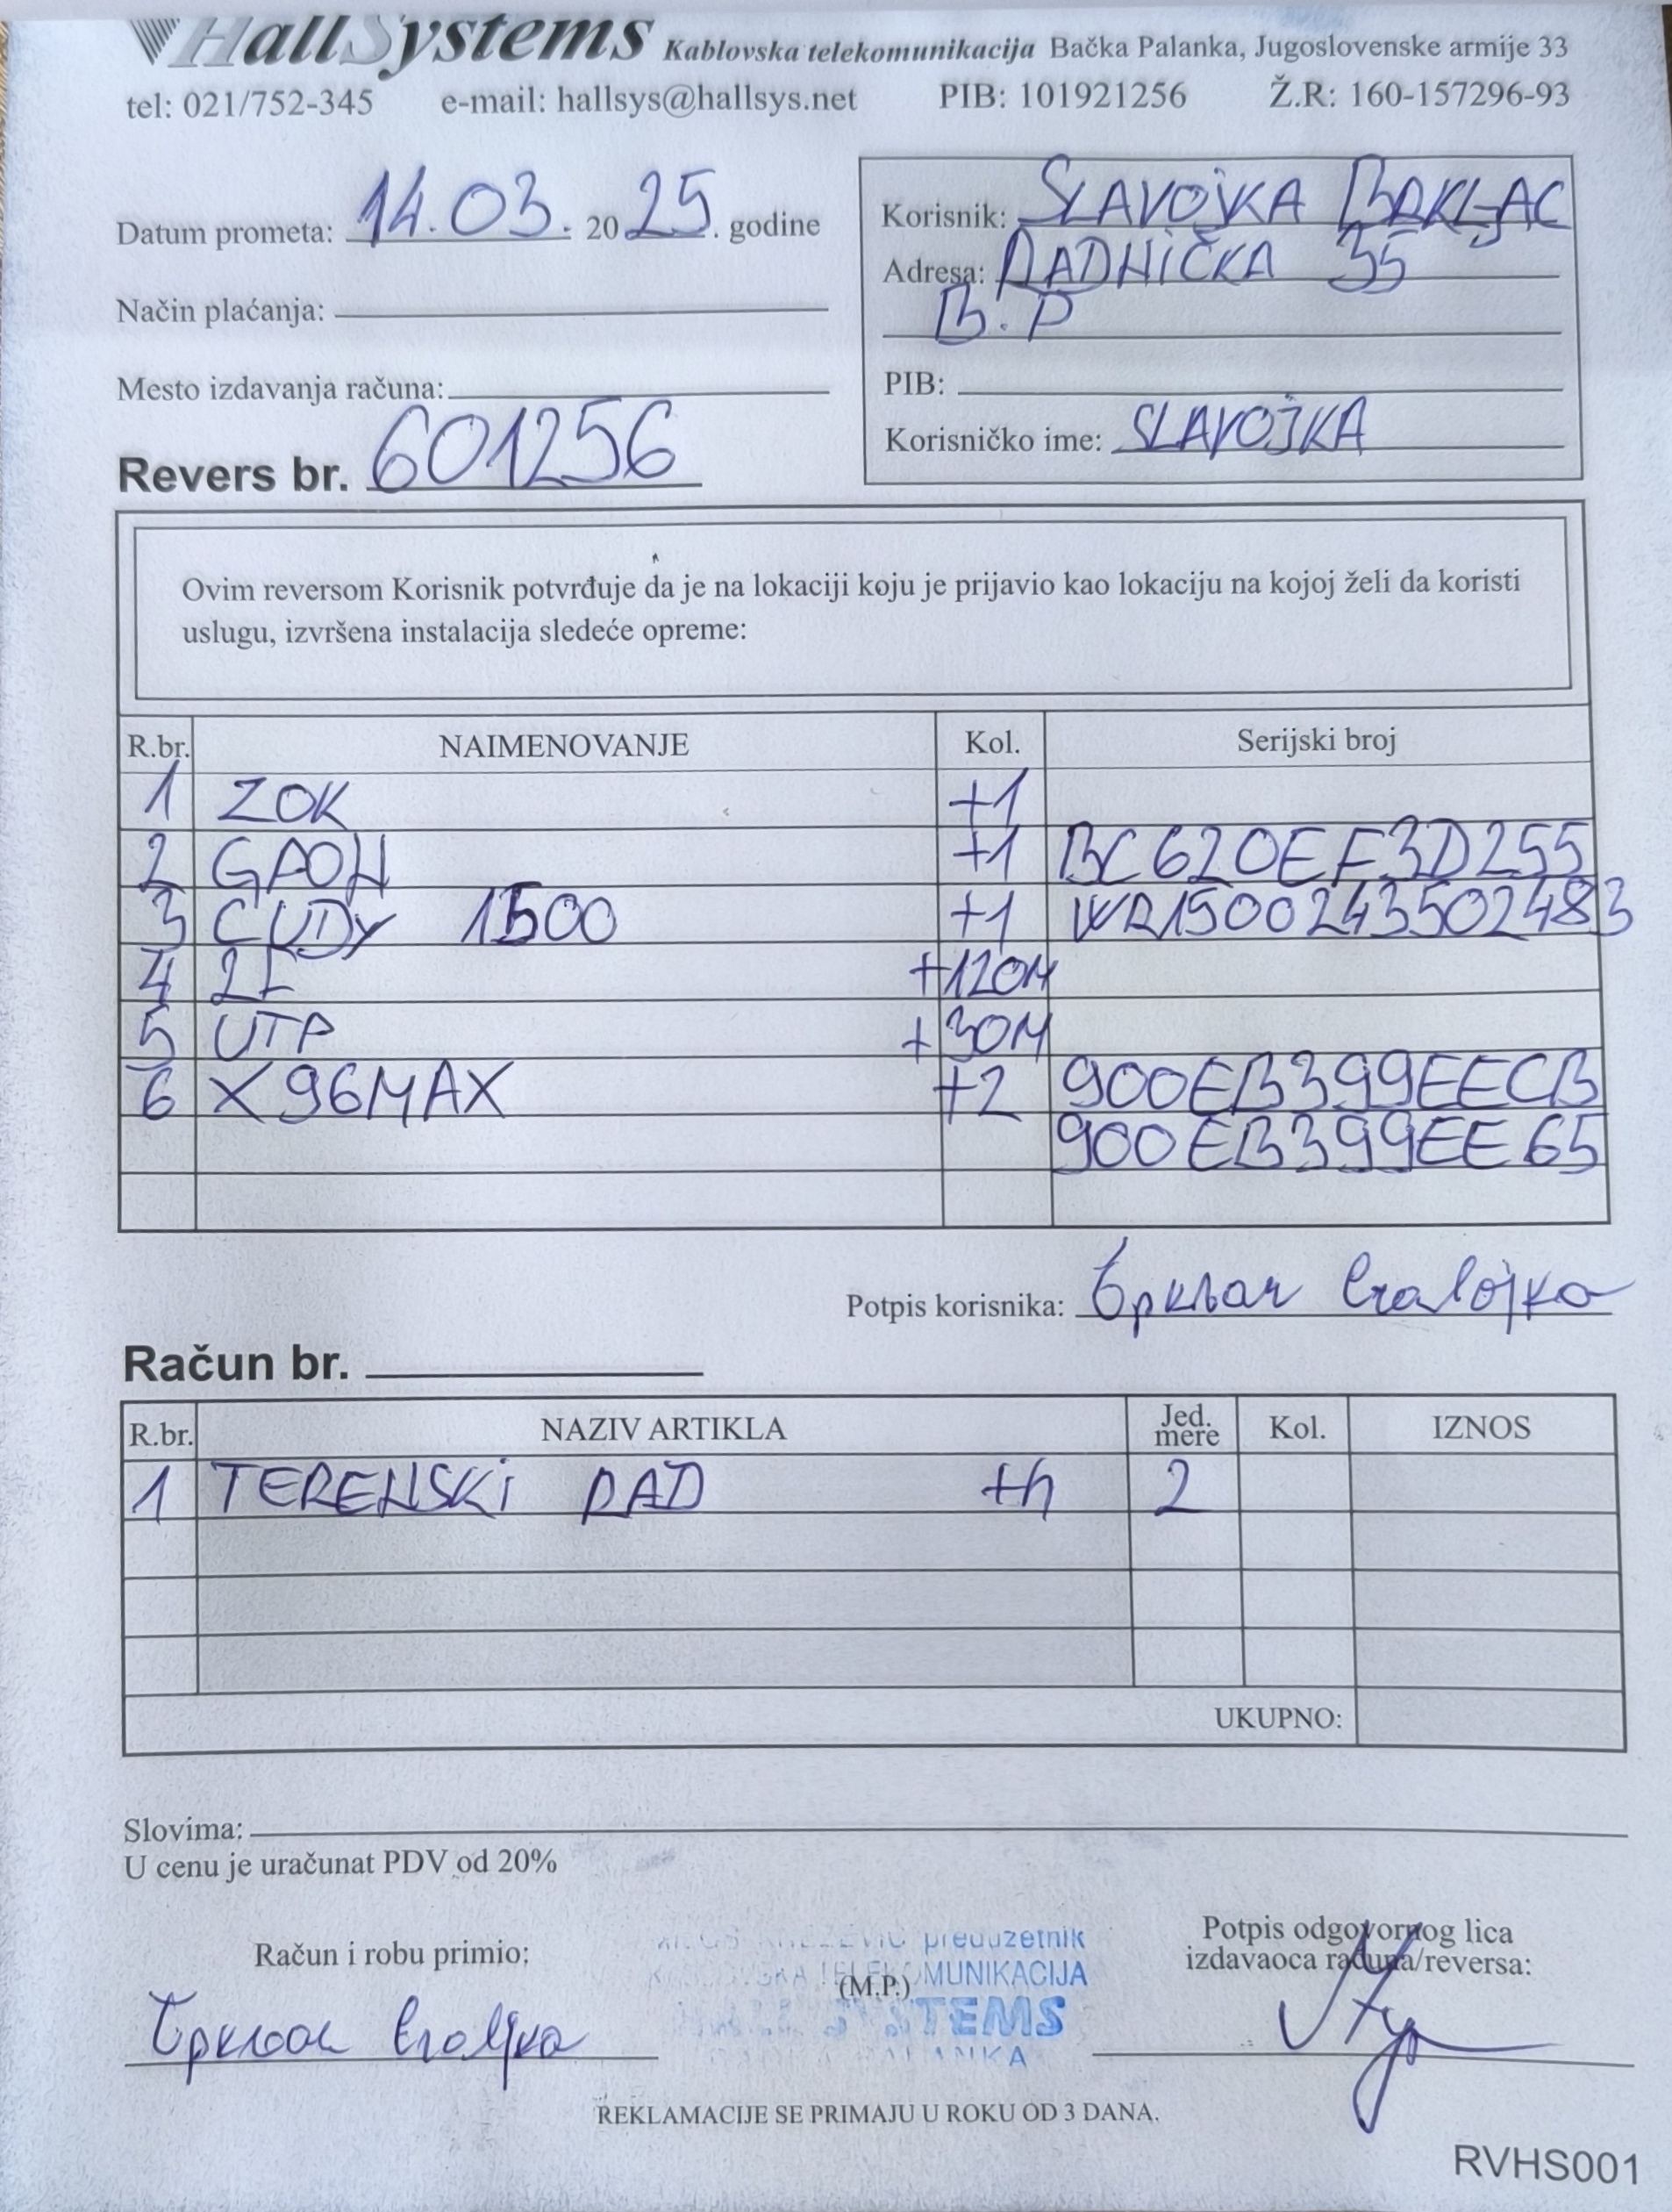 HallSystems Kablovska telekomunikacija Bačka Palanka, Jugoslovenske armije 33
tel: 021/752-345 e-mail: hallsys@hallsys.net PIB: 101921256 Ž.R: 160-157296-93
Datum prometa: 14.03. 2025. godine
Način plaćanja:
Mesto izdavanja računa:
Revers br. 601256
Korisnik: SLAVOJKA BRKLJAC
Adresa: RADNIČKA 35
B.P
PIB:
Korisničko ime: SLAVOJKA
Ovim reversom Korisnik potvrđuje da je na lokaciji koju je prijavio kao lokaciju na kojoj želi da koristi
uslugu, izvršena instalacija sledeće opreme:
R.br. NAIMENOVANJE Kol. Serijski broj
1 ZOK +1
2 GPON +1 BC620EF3D255
3 CUDY 1500 +1 WR1500243502483
4 2F +120M
5 UTP +30M
6 X96MAX +2 900EB399EECB
900EB399EE65
Potpis korisnika: Бркљач Славојка
Račun br.
R.br. NAZIV ARTIKLA Jed. mere Kol. IZNOS
1 TERENSKI RAD +h 2
UKUPNO:
Slovima:
U cenu je uračunat PDV od 20%
Račun i robu primio:
Бркљач Славојка
preduzetnik
TELEKOMUNIKACIJA
(M.P.)
SYSTEMS
PALANKA
Potpis odgovornog lica
izdavaoca računa/reversa:
REKLAMACIJE SE PRIMAJU U ROKU OD 3 DANA.
RVHS001